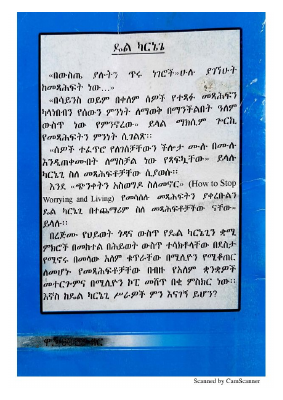 ዴል ካርኔጊ
«በውስጤ ያሉትን ጥሩ ነገሮች»ሁሉ ያገኘሁት
ከመጻሕፍት ነው...»
«በሳይንስ ወይም በቀለም ሰዎች የተጻፉ መጻሕፍን
ካላነበብን የሰውን ምንነት ለማወቅ በማንችልበት ዓለም
ውስጥ ነው የምንኖረው» ይላል ማክሲም ጎርኪ
የመጻሕፍትን ምንነት ሲገልጽ።
«ሰዎች ተፈጥሮ የለገሰቻቸውን ችሎታ ሙሉ በሙሉ
እንዲጠቀሙበት ለማስቻል ነው የጻፍኳቸው» ይላሉ
ካርኔጊ ስለ መጻሕፍቶቻቸው ሲያወሱ።
እንደ «ጭንቀትን አስወግዶ ስለመኖር» (How to Stop
Worrying and Living) የመሰሉ መጻሕፍትን ያቀረቡልን
ዴል ካርኔጊ በተጨማሪም ስለ መጻሕፍቶቻቸው ናቸው»
ይላሉ።
በረጅሙ የህይወት ጎዳና ውስጥ የዴል ካርኔጊን ቋሚ
ምክሮች በመከተል በሕይወት ውስጥ ተሳክቶላቸው በደስታ
የሚኖሩ በመላው አለም ቁጥራቸው በሚሊዮን የሚቆጠር
ለመሆኑ የመጻሕፍቶቻቸው በብዙ የአለም ቋንቋዎች
መተርጉምና በሚሊዮን ኮፒ መሸጥ በቂ ምስክር ነው።
እኛስ ከዴል ካርኔጊ ሥራዎች ምን እናገኝ ይሆን?
Scanned by CamScanner